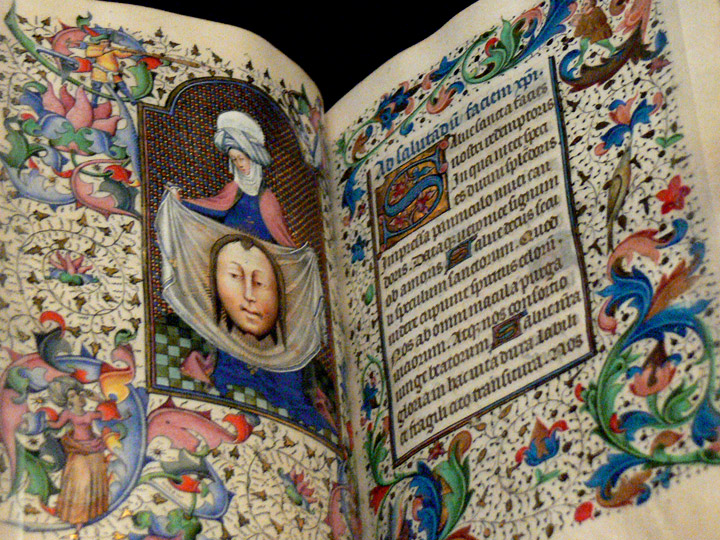 Ad salutādū faciem xpi.
Salue sancta facies
nostri redemptoris
in qua nitet speci
es diuini splēdoris
Impressa panniculo niuei can
doris. Dataq; ueronice signum
ob amoris Salue decus secu
li speculum sanctorum. Quod
uidere cupiunt spiritus celorū
Nos ab omni macula purga
uitiorum. Atq; nos consortio
iunge beatorum Salue nostra
gloria in hac uita dura labili
et fragili cito transitura. Nos